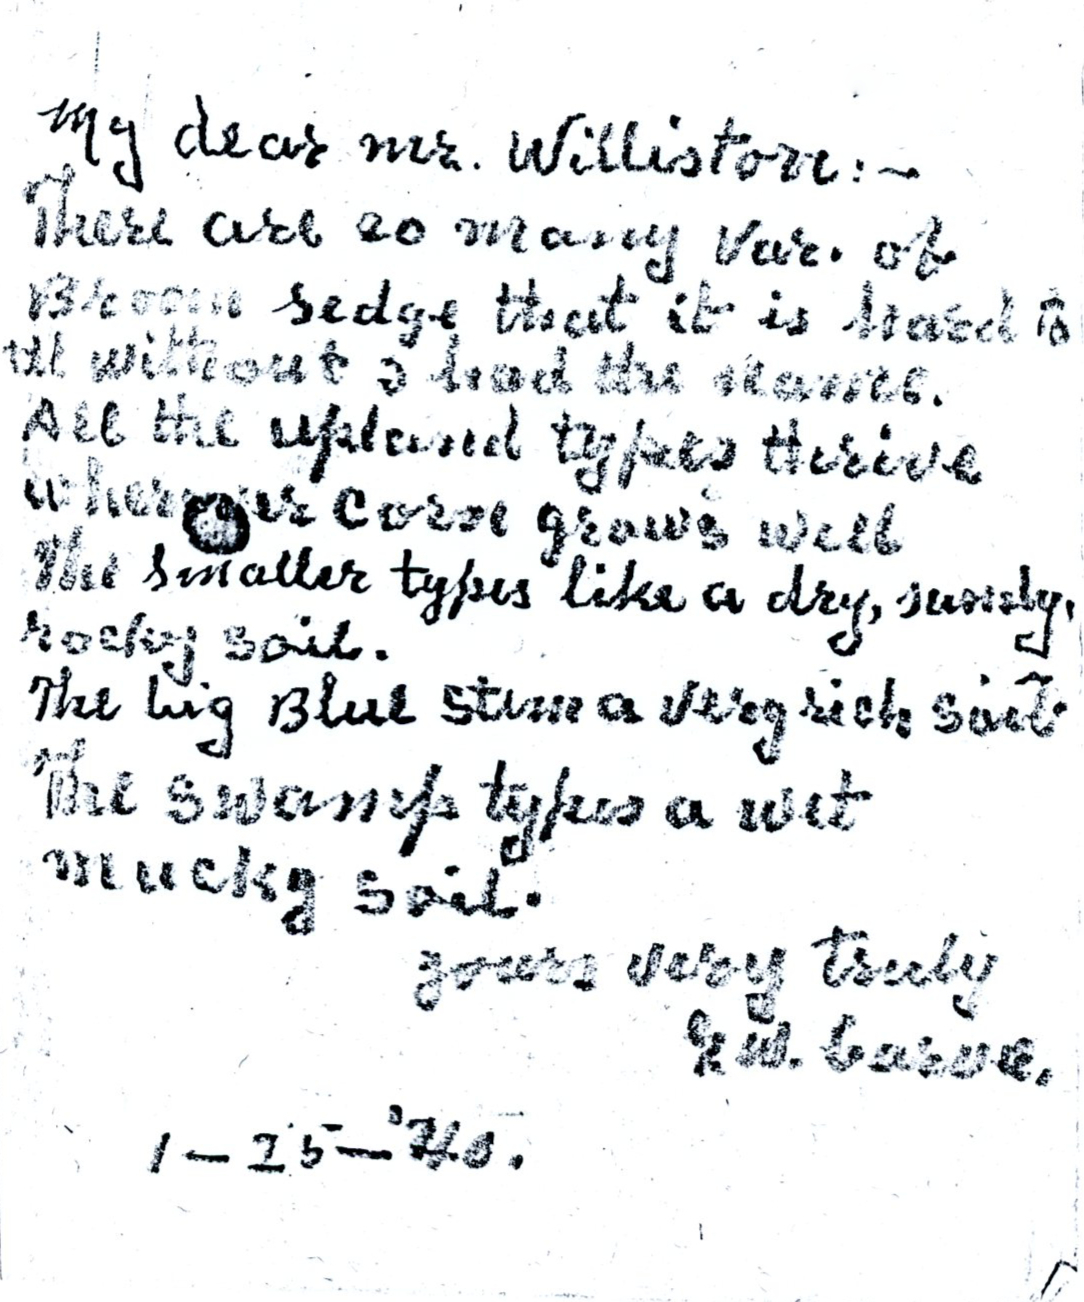 My dear Mr. Williston:-
There are so many var. of
Broom sedge that it is hard to
tell without I had the name.
All the upland types thrive
wherever corn grows well
The smaller types like a dry, sandy,
rocky soil.
The big Blue stem a very rich soil
The swamp types a wet
mucky soil.
Yours very truly
G. W. Carver.
1-25-'40.